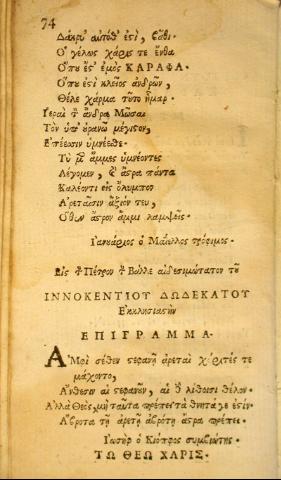 74
Δάκρυ αὐτόθ' ἐςὶ,
Ὁ γέλως χάρις τε ἔνθα
Ὅπυ ἐς' ἐμὸς ΚΑΡΑΦΑ.
Ὅπυ ἐςὶ κλεῖος ἀνδρῶν,
Θέλε χάρμα τῦτο ἦμαρ.
Ἱεραὶ ἄνδρα Μῶσαι
Τὸν ὑπ' ὐρανῶ μέγιςον,
Ἐπέεσσιν ὑμνέεσθε.
Τὺ ἄμμες ὑμνέοντες
Λέγομεν, ἄςρα πάντα
Καλέοντι εἰς ὄλυμπον
Ἀρετᾶισιν ἄξιόν τευ,
Ὅθεν ἄςρον ἄμμι λαμψεῖς.
Ἰανυάριος ὁ Μαΐελλος τρόφιμος.
Εἰς Πέτρον Βάλλε αἰδεσιμώτατον τῦ
ΙΝΝΟΚΕΝΤΙΟΥ ΔΩΔΕΚΑΤΟΥ
Ἐκκλησιαςὴν
ΕΠΙΓΡΑΜΜΑ.
Ἀμφὶ σέθεν ςεφανῇ ἀρεταὶ χάριτές τε
μάχοντο,
Ἄνθεσιν αἱ ςεφανῶν, αἱ δ' λίθοισι θέλον.
Ἀλλὰ Θεὸς, μὴ ταῦτα πρέπει τὰ θνητά γε ἐσίν.
Ἄβροτα τῇ ἀρετῇ ἀβρότῃ ἄςρα πρέπει.
Ἰωσὴφ ὁ Κιόπφος συμβιώτης.
ΤΩ ΘΕΩ ΧΑΡΙΣ.